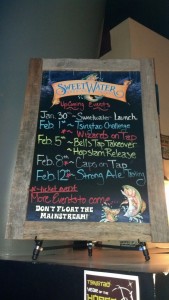 SWEETWATER
Upcoming Events
Jan. 30th ~ Sweetwater Launch
Feb. 1st ~ Tsingtao Challenge
Wizards on Tap
Feb. 5th ~ Bell's Tap Takeover
~ Hopslam Release
Feb. 8th ~ Caps on Tap
Feb. 12th ~ Strong Ale Tasting
*-ticket event
More Events to come...
DON'T FLOAT THE
MAINSTREAM!
TSINGTAO
YEAR OF THE
HORSE